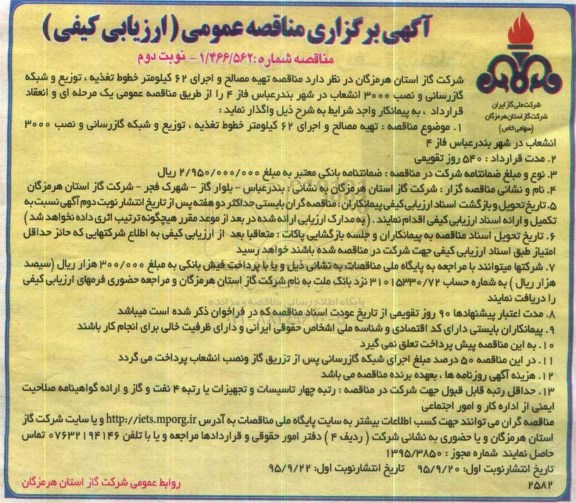 آگهی برگزاری مناقصه عمومی (ارزیابی کیفی)
مناقصه شماره: ۱/۴۶۶/۵۶۲ - نوبت دوم
شرکت ملی گاز ایران
شرکت گاز استان هرمزگان
(سهامی خاص)
شرکت گاز استان هرمزگان در نظر دارد مناقصه تهیه مصالح و اجرای ۶۲ کیلومتر خطوط تغذیه ، توزیع و شبکه
گازرسانی و نصب ۳۰۰۰ انشعاب در شهر بندرعباس فاز ۴ را از طریق مناقصه عمومی یک مرحله ای و انعقاد
قرارداد ، به پیمانکار واجد شرایط به شرح ذیل واگذار نماید :
۱. موضوع مناقصه : تهیه مصالح و اجرای ۶۲ کیلومتر خطوط تغذیه ، توزیع و شبکه گازرسانی و نصب ۳۰۰۰
انشعاب در شهر بندرعباس فاز ۴
۲. مدت قرارداد : ۵۴۰ روز تقویمی
۳. نوع و مبلغ ضمانتنامه شرکت در مناقصه : ضمانتنامه بانکی معتبر به مبلغ ۲/۹۵۰/۰۰۰/۰۰۰ ریال
۴. نام و نشانی مناقصه گزار : شرکت گاز استان هرمزگان به نشانی : بندرعباس - بلوار گاز - شهرک فجر - شرکت گاز استان هرمزگان
۵. تاریخ تحویل و بازگشت اسناد ارزیابی کیفی پیمانکاران : مناقصه گران بایستی حداکثر دو هفته پس از تاریخ انتشار نوبت دوم آگهی نسبت به
تکمیل و ارائه اسناد ارزیابی کیفی اقدام نمایند . ( به مدارک ارزیابی ارائه شده در بعد از موعد مقرر هیچگونه ترتیب اثری داده نخواهد شد )
۶. تاریخ تحویل اسناد مناقصه به پیمانکاران و جلسه بازگشایی پاکات : متعاقبا بعد از ارزیابی کیفی به اطلاع شرکتهایی که حائز حداقل
امتیاز طبق اسناد ارزیابی کیفی جهت شرکت در مناقصه شده باشند خواهد رسید
۷. شرکتها میتوانند با مراجعه به پایگاه ملی مناقصات به نشانی ذیل و یا با پرداخت فیش بانکی به مبلغ ۳۰۰/۰۰۰ هزار ریال (سیصد
هزار ریال ) به شماره حساب ۳۱۰۱۵۳۳۰/۷۲ نزد بانک ملت به نام شرکت گاز استان هرمزگان و مراجعه حضوری فرمهای ارزیابی کیفی
را دریافت نمایند
۸. مدت اعتبار پیشنهادها ۹۰ روز تقویمی از تاریخ عودت اسناد مناقصه که در فراخوان ذکر شده است میباشد
۹. پیمانکاران بایستی دارای کد اقتصادی و شناسه ملی اشخاص حقوقی ایرانی و دارای ظرفیت خالی برای انجام کار باشند
۱۰. به این مناقصه پیش پرداخت تعلق نمی گیرد
۱۱. در این مناقصه ۵۰ درصد مبلغ اجرای شبکه گازرسانی پس از تزریق گاز ونصب انشعاب پرداخت می گردد
۱۲. هزینه آگهی روزنامه ها ، بعهده برنده مناقصه می باشد
۱۳. حداقل رتبه قابل قبول جهت شرکت در مناقصه : رتبه چهار تاسیسات و تجهیزات یا رتبه ۴ نفت و گاز و ارائه گواهینامه صلاحیت
ایمنی از اداره کار و امور اجتماعی
مناقصه گران می توانند جهت کسب اطلاعات بیشتر به سایت پایگاه ملی مناقصات به آدرس http://iets.mporg.ir و یا سایت شرکت گاز
استان هرمزگان و یا حضوری به نشانی شرکت ( ردیف ۴ ) دفتر امور حقوقی و قراردادها مراجعه و یا با تلفن ۰۷۶۳۲۱۹۴۱۴۶ تماس
حاصل نمایند شماره مجوز : ۱۳۹۵/۳۸۵۰
تاریخ انتشارنوبت اول: ۹۵/۹/۲۰ تاریخ انتشارنوبت اول: ۹۵/۹/۲۲
۲۵۸۲ روابط عمومی شرکت گاز استان هرمزگان